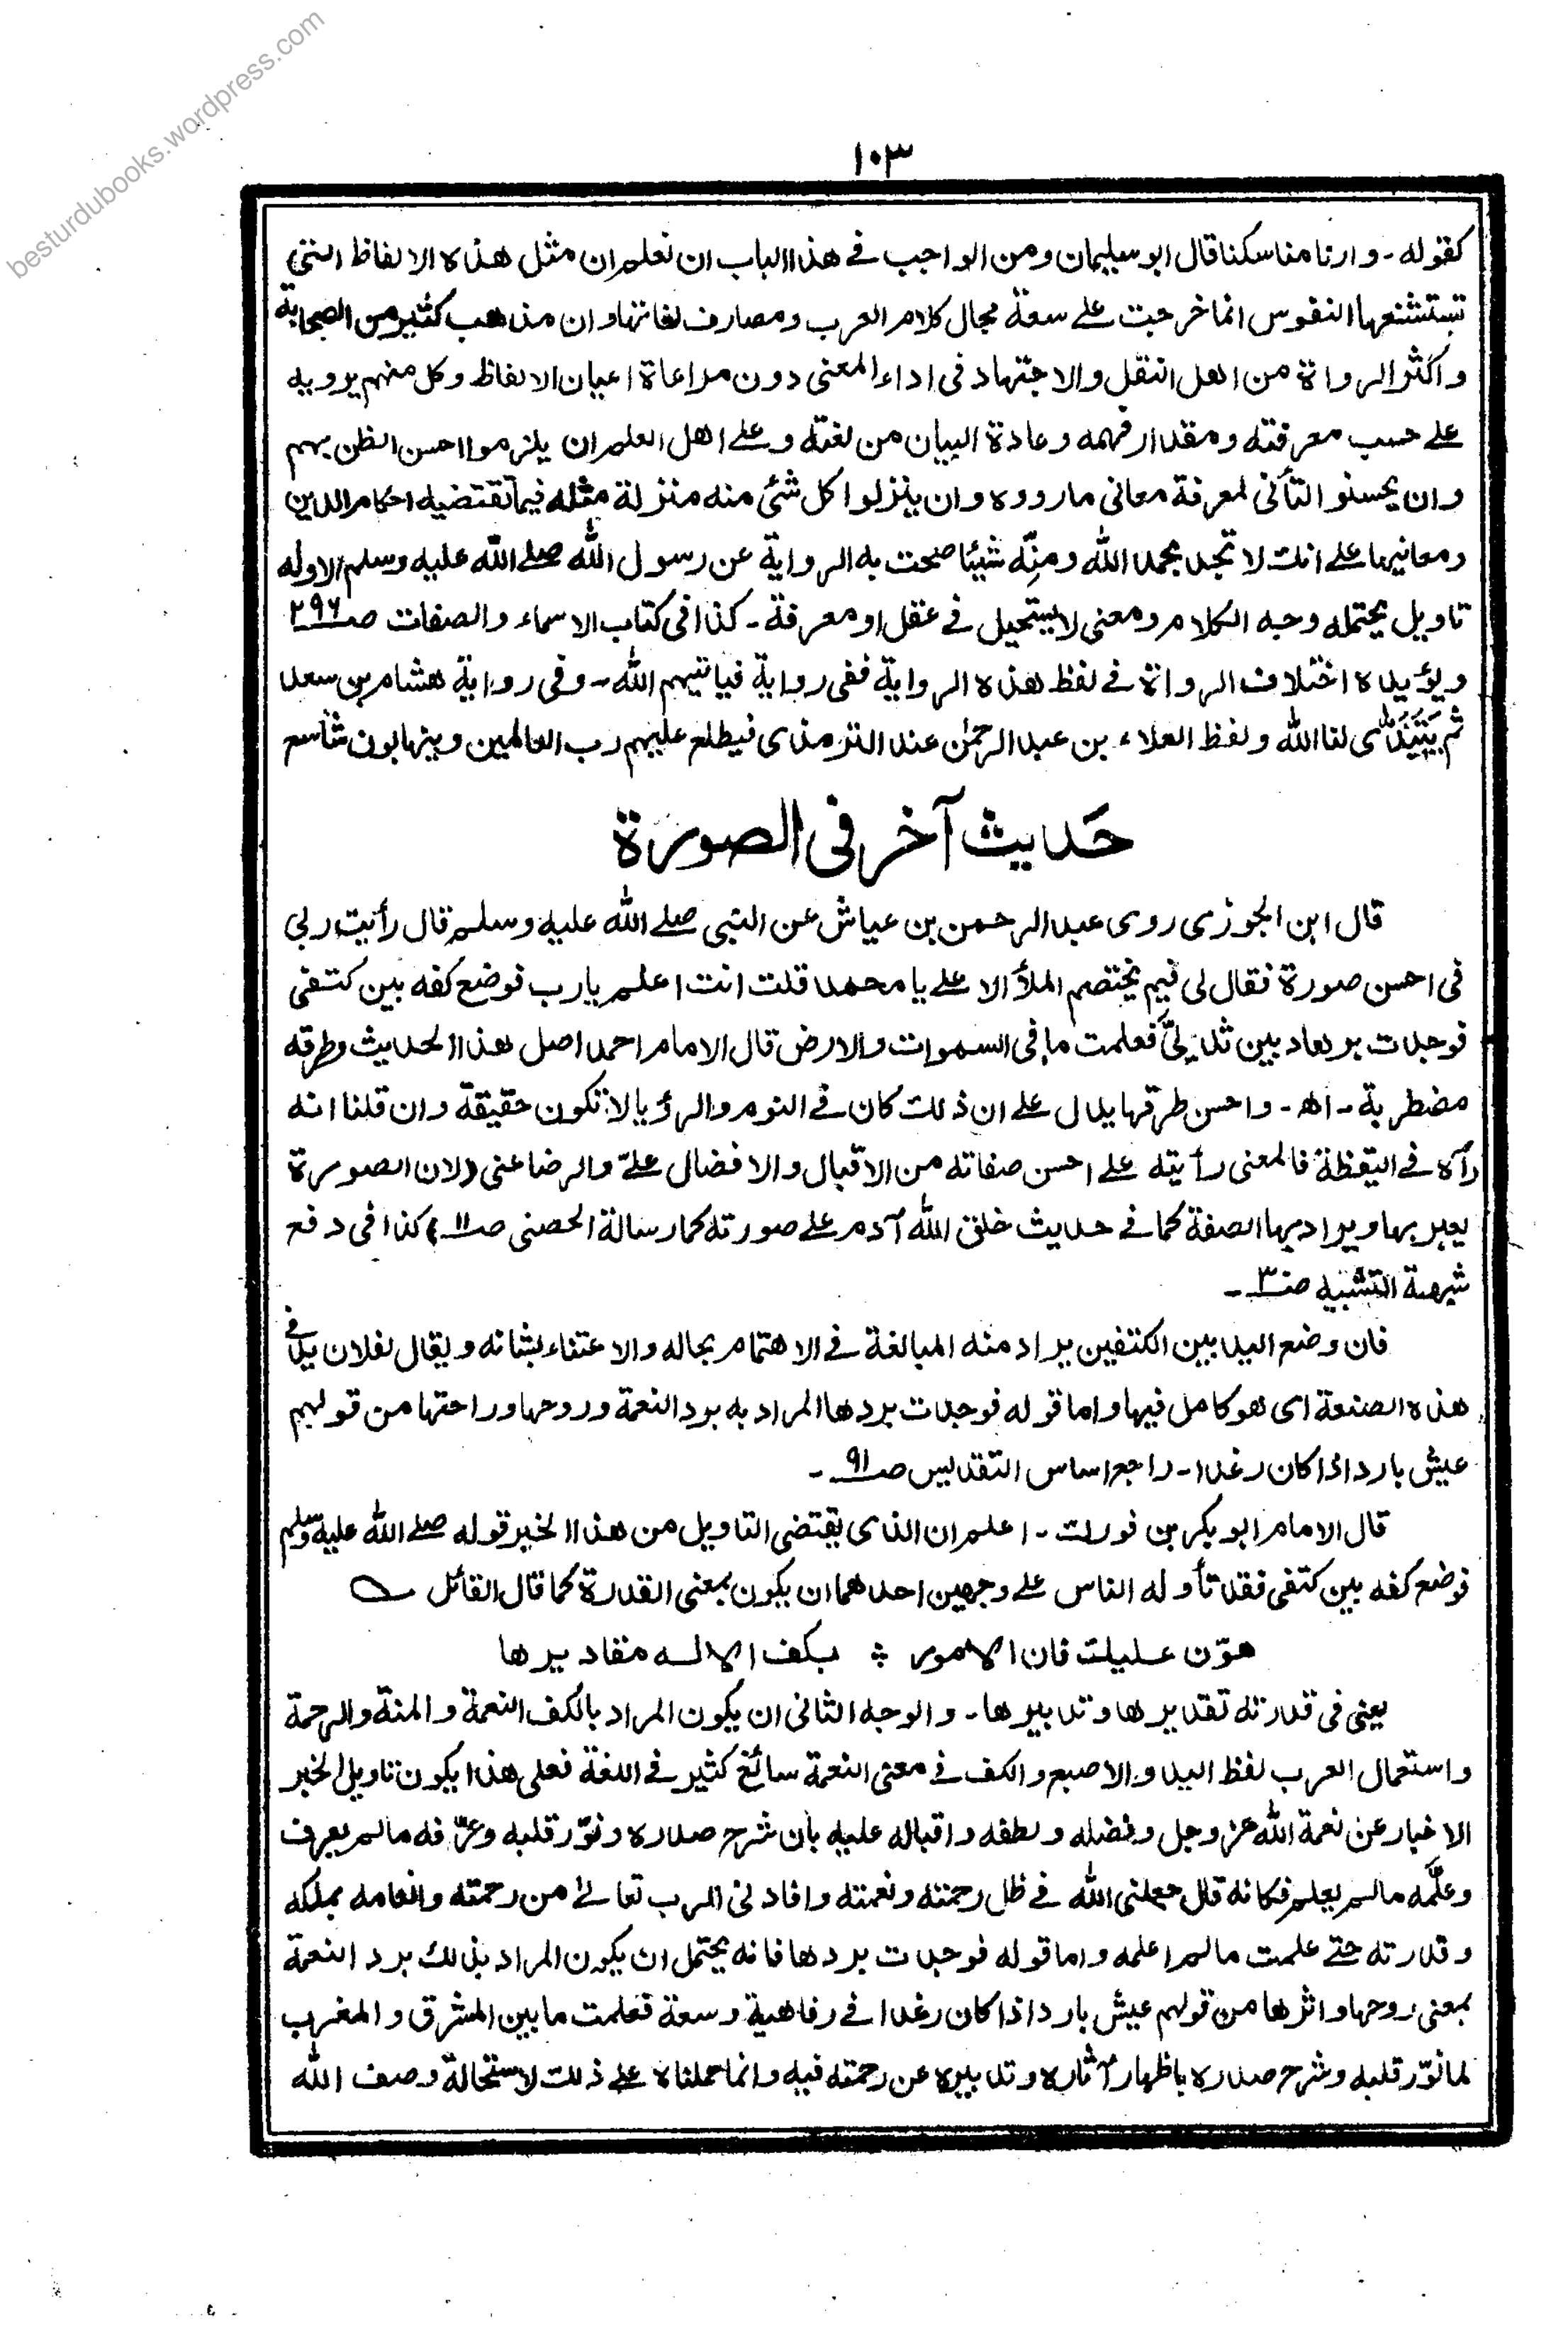 besturdubooks.wordpress.com
١٠٣
كقوله - وارنا مناسكنا قال ابو سليمان ومن الواجب فى هذا الباب ان نعلم ان مثل هذه الالفاظ التى
تستشنعها النفوس انما خرجت على سعة مجال كلام العرب ومصارف لغاتها وان مذاهب كثير من الصحابة
واكثر الرواة من اهل النقل والاجتهاد فى اداء المعنى دون مراعاة اعيان الالفاظ وكل منهم يرويه
على حسب معرفته ومقدار فهمه وعادة البيان من لغته وعلى اهل العلم ان يلزموا احسن الظن بهم
وان يحسنو التأنى لمعرفة معانى مارووه وان ينزلوا كل شئ منه منزلة مثله فيما تقتضيه احكام الدين
ومعانيها على انك لا تجد بحمد الله ومنّه شيئا صحت به الرواية عن رسول الله صلى الله عليه وسلم الا وله
تاويل يحتمله وجه الكلام ومعنى لا يستحيل فى عقل او معرفة - كذا فى كتاب الاسماء والصفات صـ٢٩٦
ويؤيده اختلاف الرواة فى لفظ هذه الرواية ففى رواية فياتيهم الله - وفى رواية هشام بن سعد
ثم يَتَبَدّٰى لنا الله ولفظ العلاء بن عبد الرحمٰن عند الترمذى فيطلع عليهم رب العالمين وبينها بون شاسع
حَديث آخر فى الصورة
قال ابن الجوزى روى عبد الرحمن بن عياش عن النبى صلى الله عليه وسلم قال رأيت ربى
فى احسن صورة فقال لى فيم يختصم الملأ الاعلى يا محمد قلت انت اعلم يارب فوضع كفه بين كتفى
فوجدت بردها بين ثديىّ فعلمت ما فى السموات والارض قال الامام احمد اصل هذا الحديث وطرقه
مضطربة - اهـ - واحسن طرقها يدل على ان ذلك كان فى النوم والرؤيا لا تكون حقيقة وان قلنا انه
رآه فى اليقظة فالمعنى رأيته على احسن صفاته من الاقبال والافضال علىّ والرضا عنى (لان الصورة
يعبر بها ويراد بها الصفة كما فى حديث خلق الله آدم على صورته كما رسالة الحصنى صـ١١) كذا فى دفع
شبهة التشبيه صـ٣ -
فان وضع اليد بين الكتفين يراد منه المبالغة فى الاهتمام بحاله والاعتناء بشانه ويقال لفلان يد فى
هذه الصنعة اى هو كامل فيها واما قوله فوجدت بردها المراد به برد النعمة وروحها وراحتها من قولهم
عيش بارد اذا كان رغدا - راجع اساس التقديس صـ٩١ -
قال الامام ابو بكر بن فورك - اعلم ان الذى يقتضى التاويل من هذا الخبر قوله صلى الله عليه وسلم
فوضع كفه بين كتفى فقد تأوله الناس على وجهين احدهما ان يكون بمعنى القدرة كما قال القائل ؎
هوّن عليك فان الامور ؞ بكف الاله مقاديرها
يعنى فى قدرته تقديرها وتدبيرها - والوجه الثانى ان يكون المراد بالكف النعمة والمنة والرحمة
واستعمال العرب لفظ اليد والاصبع والكف فى معنى النعمة سائغ كثير فى اللغة فعلى هذا يكون تاويل الخبر
الاخبار عن نعمة الله عز وجل وفضله ولطفه واقباله عليه بأن شرح صدره ونوّر قلبه وعرّفه مالم يعرف
وعلّمه مالم يعلم فكانه قال جعلنى الله فى ظل رحمته ونعمته وافادنى الرب تعالى من رحمته وانعامه بملكه
وقدرته حتى علمت مالم اعلمه واما قوله فوجدت بردها فانه يحتمل ان يكون المراد بذلك برد النعمة
بمعنى روحها واثرها من قولهم عيش بارد اذا كان رغدا فى رفاهية وسعة فعلمت ما بين المشرق والمغرب
لما نوّر قلبه وشرح صدره باظهار آثاره وتدبيره عن رحمته فيه وانما حملناه على ذلك لاستحالة وصف الله